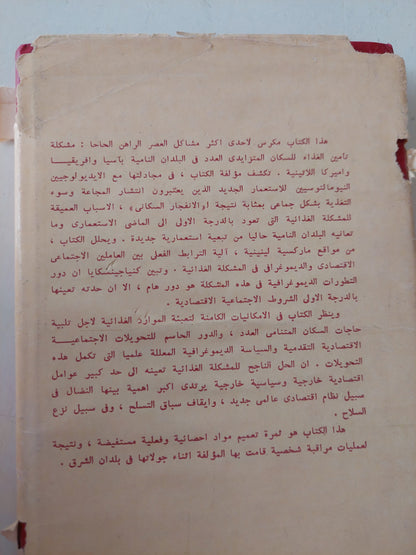 هذا الكتاب مكرس لاحدى اكثر مشاكل العصر الراهن الحاحا : مشكلة
تامين الغذاء للسكان المتزايدى العدد فى البلدان النامية بآسيا وافريقيا
واميركا اللاتينية . تكشف مؤلفة الكتاب ، فى مجادلتها مع الايديولوجيين
النيومالتوسيين للاستعمار الجديد الذين يعتبرون انتشار المجاعة وسوء
التغذية بشكل جماعى بمثابة نتيجة «والانفجار السكانى» ، الاسباب العميقة
للمشكلة الغذائية التى تعود بالدرجة الاولى الى الماضى الاستعمارى وما
تعانيه البلدان النامية حاليا من تبعية استعمارية جديدة . ويحلل الكتاب ،
من مواقع ماركسية لينينية ، آلية الترابط الفعلى بين العاملين الاجتماعى
الاقتصادى والديموغرافى فى المشكلة الغذائية . وتبين كنياجينسكايا ان دور
التطورات الديموغرافية فى هذه المشكلة هو دور هام ، الا ان حدته تعينها
بالدرجة الاولى الشروط الاجتماعية الاقتصادية .
وينظر الكتاب فى الامكانيات الكامنة لتعبئة الموارد الغذائية لاجل تلبية
حاجات السكان المتنامى العدد ، والدور الحاسم للتحويلات الاجتماعية
الاقتصادية التقدمية والسياسة الديموغرافية المعللة علميا التى تكمل هذه
التحويلات . ان الحل الناجح للمشكلة الغذائية تعينه الى حد كبير عوامل
اقتصادية خارجية وسياسية خارجية يرتدى اكبر اهمية بينها النضال فى
سبيل نظام اقتصادى عالمى جديد ، وايقاف سباق التسلح ، وفى سبيل نزع
السلاح .
هذا الكتاب هو ثمرة تعميم مواد احصائية وفعلية مستفيضة ، ونتيجة
لعمليات مراقبة شخصية قامت بها المؤلفة اثناء جولاتها فى بلدان الشرق .